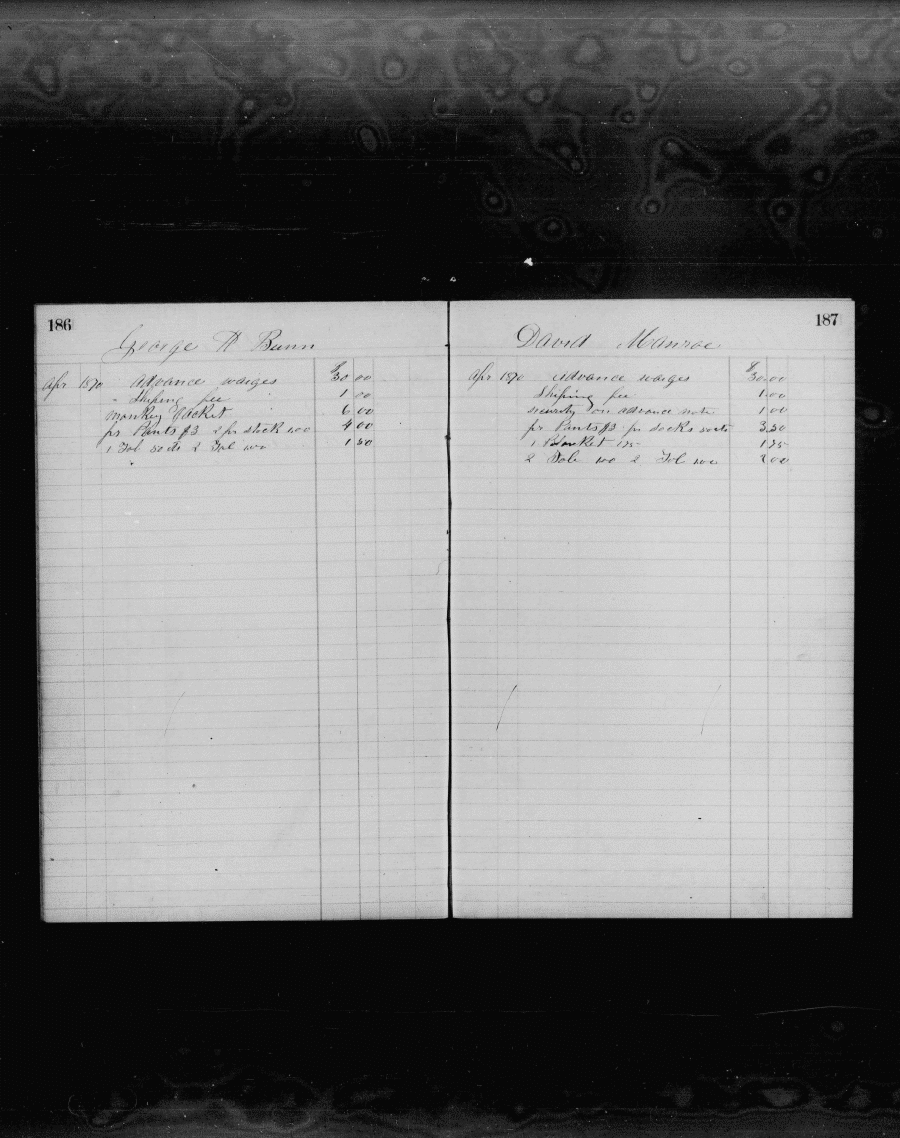 186
George A Bunn
$
Apr 1870 Advance wages 30 00
" Shiping fee 1 00
monkey Jacket 6 00
pr Pants $3 2 pr stock 100 4 00
1 Tob 50cts 2 Tob 100 1 50
187
David Manroe
$
Apr 1870 Advance wages 30.00
Shiping fee 1.00
security on advance note 1 00
pr Pants $3 pr socks 50cts 3.50
1 Blanket 175 1.75
2 Tob 100 2 Tob 100 2.00